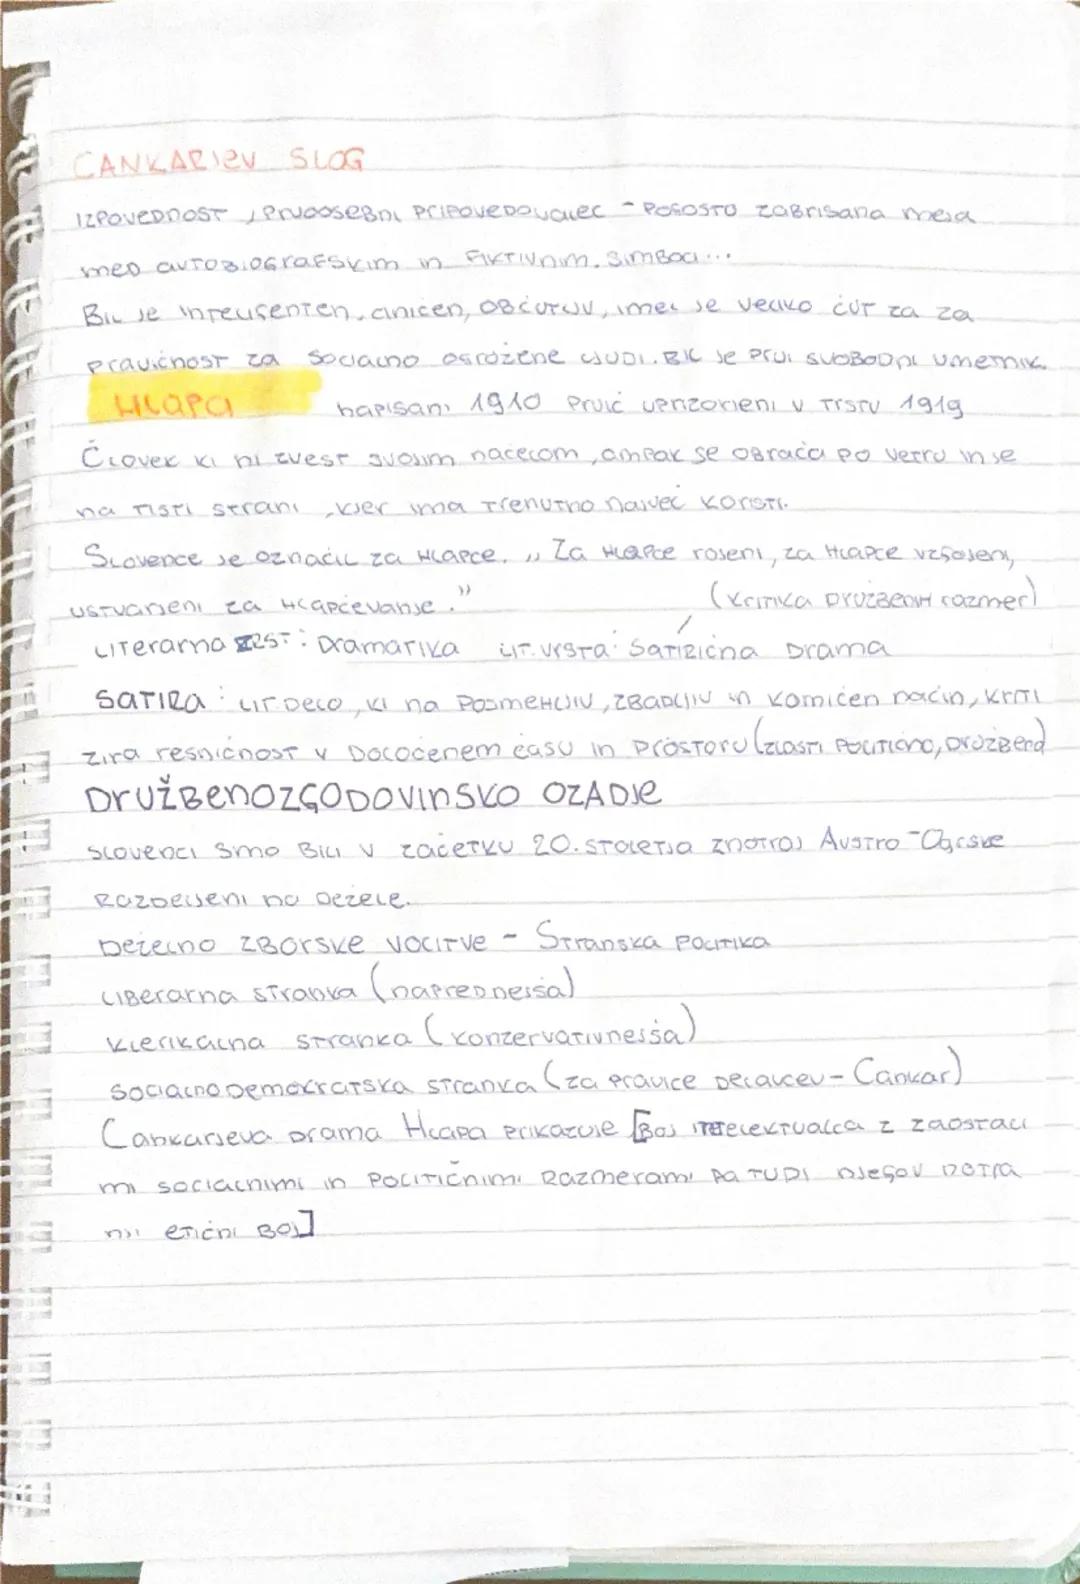 CANKARJEV SLOG
IZPOVEDNOST, PRVOOSEBNI PRIPOVEDOVALEC - POGOSTO ZABRISANA MEJA
MED AVTOBIOGRAFSKIM IN FIKTIVNIM. SIMBOLI...
BIL JE INTELIGENTEN, CINIČEN, OBČUTLJIV, IMEL JE VELIKO ČUT ZA ZA
PRAVIČNOST ZA SOCIALNO OGROŽENE LJUDI. BIL JE PRVI SVOBODNI UMETNIK.
HLAPCI NAPISANI 1910 PRVIČ UPRIZORJENI V TRSTU 1919
ČLOVEK KI NI ZVEST SVOJIM NAČELOM, AMPAK SE OBRAČA PO VETRU IN JE
NA TISTI STRANI, KJER IMA TRENUTNO NAJVEČ KORISTI.
SLOVENCE JE OZNAČIL ZA HLAPCE. ,, ZA HLAPCE ROJENI, ZA HLAPCE VZGOJENI,
USTVARJENI ZA HLAPČEVANJE." (KRITIKA DRUŽBENIH RAZMER)
LITERARNA ZRST: DRAMATIKA LIT. VRSTA: SATIRIČNA DRAMA
SATIRA: LIT. DELO, KI NA POSMEHLJIV, ZBADLJIV IN KOMIČEN NAČIN, KRITI
ZIRA RESNIČNOST V DOLOČENEM ČASU IN PROSTORU (ZLASTI POLITIČNO, DRUŽBENO)
DRUŽBENOZGODOVINSKO OZADJE
SLOVENCI SMO BILI V ZAČETKU 20. STOLETJA ZNOTRAJ AVSTRO-OGRSKE
RAZDELJENI NA DEŽELE.
DEŽELNO ZBORSKE VOLITVE - STRANSKA POLITIKA
LIBERARNA STRANKA (NAPREDNEJŠA)
KLERIKALNA STRANKA (KONZERVATIVNEJŠA)
SOCIALNO DEMOKRATSKA STRANKA (ZA PRAVICE DELAVCEV - CANKAR)
CANKARJEVA DRAMA HLAPCI PRIKAZUJE [BOJ INTELEKTUALCA Z ZAOSTALI
MI SOCIALNIMI IN POLITIČNIMI RAZMERAMI PA TUDI NJEGOV NOTRA
NJI ETIČNI BOJ]